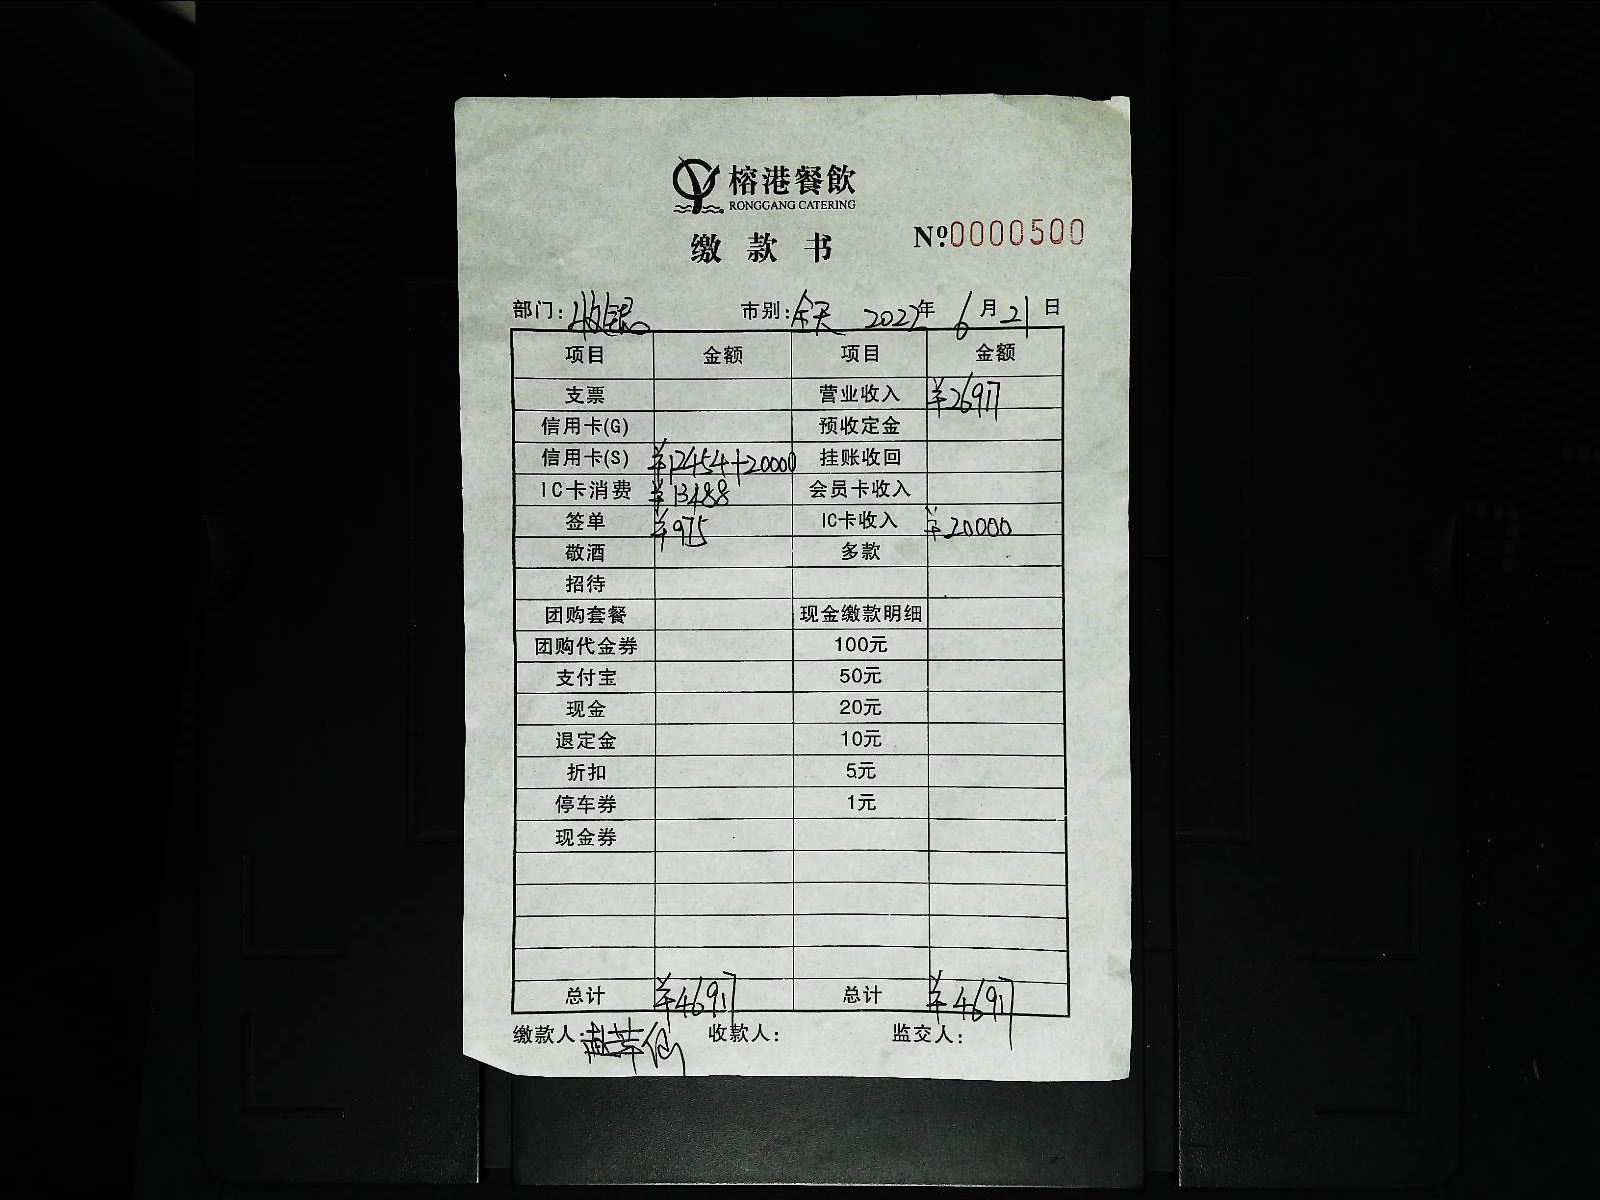 榕港餐飲
RONGGANG CATERING
缴款书 Nº:0000500
部门:收银 市别:全天 2022年6月21日
项目 金额 项目 金额
支票 营业收入 ¥26917
信用卡(G) 预收定金
信用卡(S) ¥12454+20000 挂账收回
IC卡消费 ¥13488 会员卡收入
签单 ¥975 IC卡收入 ¥20000
敬酒 多款
招待
团购套餐 现金缴款明细
团购代金券 100元
支付宝 50元
现金 20元
退定金 10元
折扣 5元
停车券 1元
现金券
总计 ¥46917 总计 ¥46917
缴款人: 收款人: 监交人: